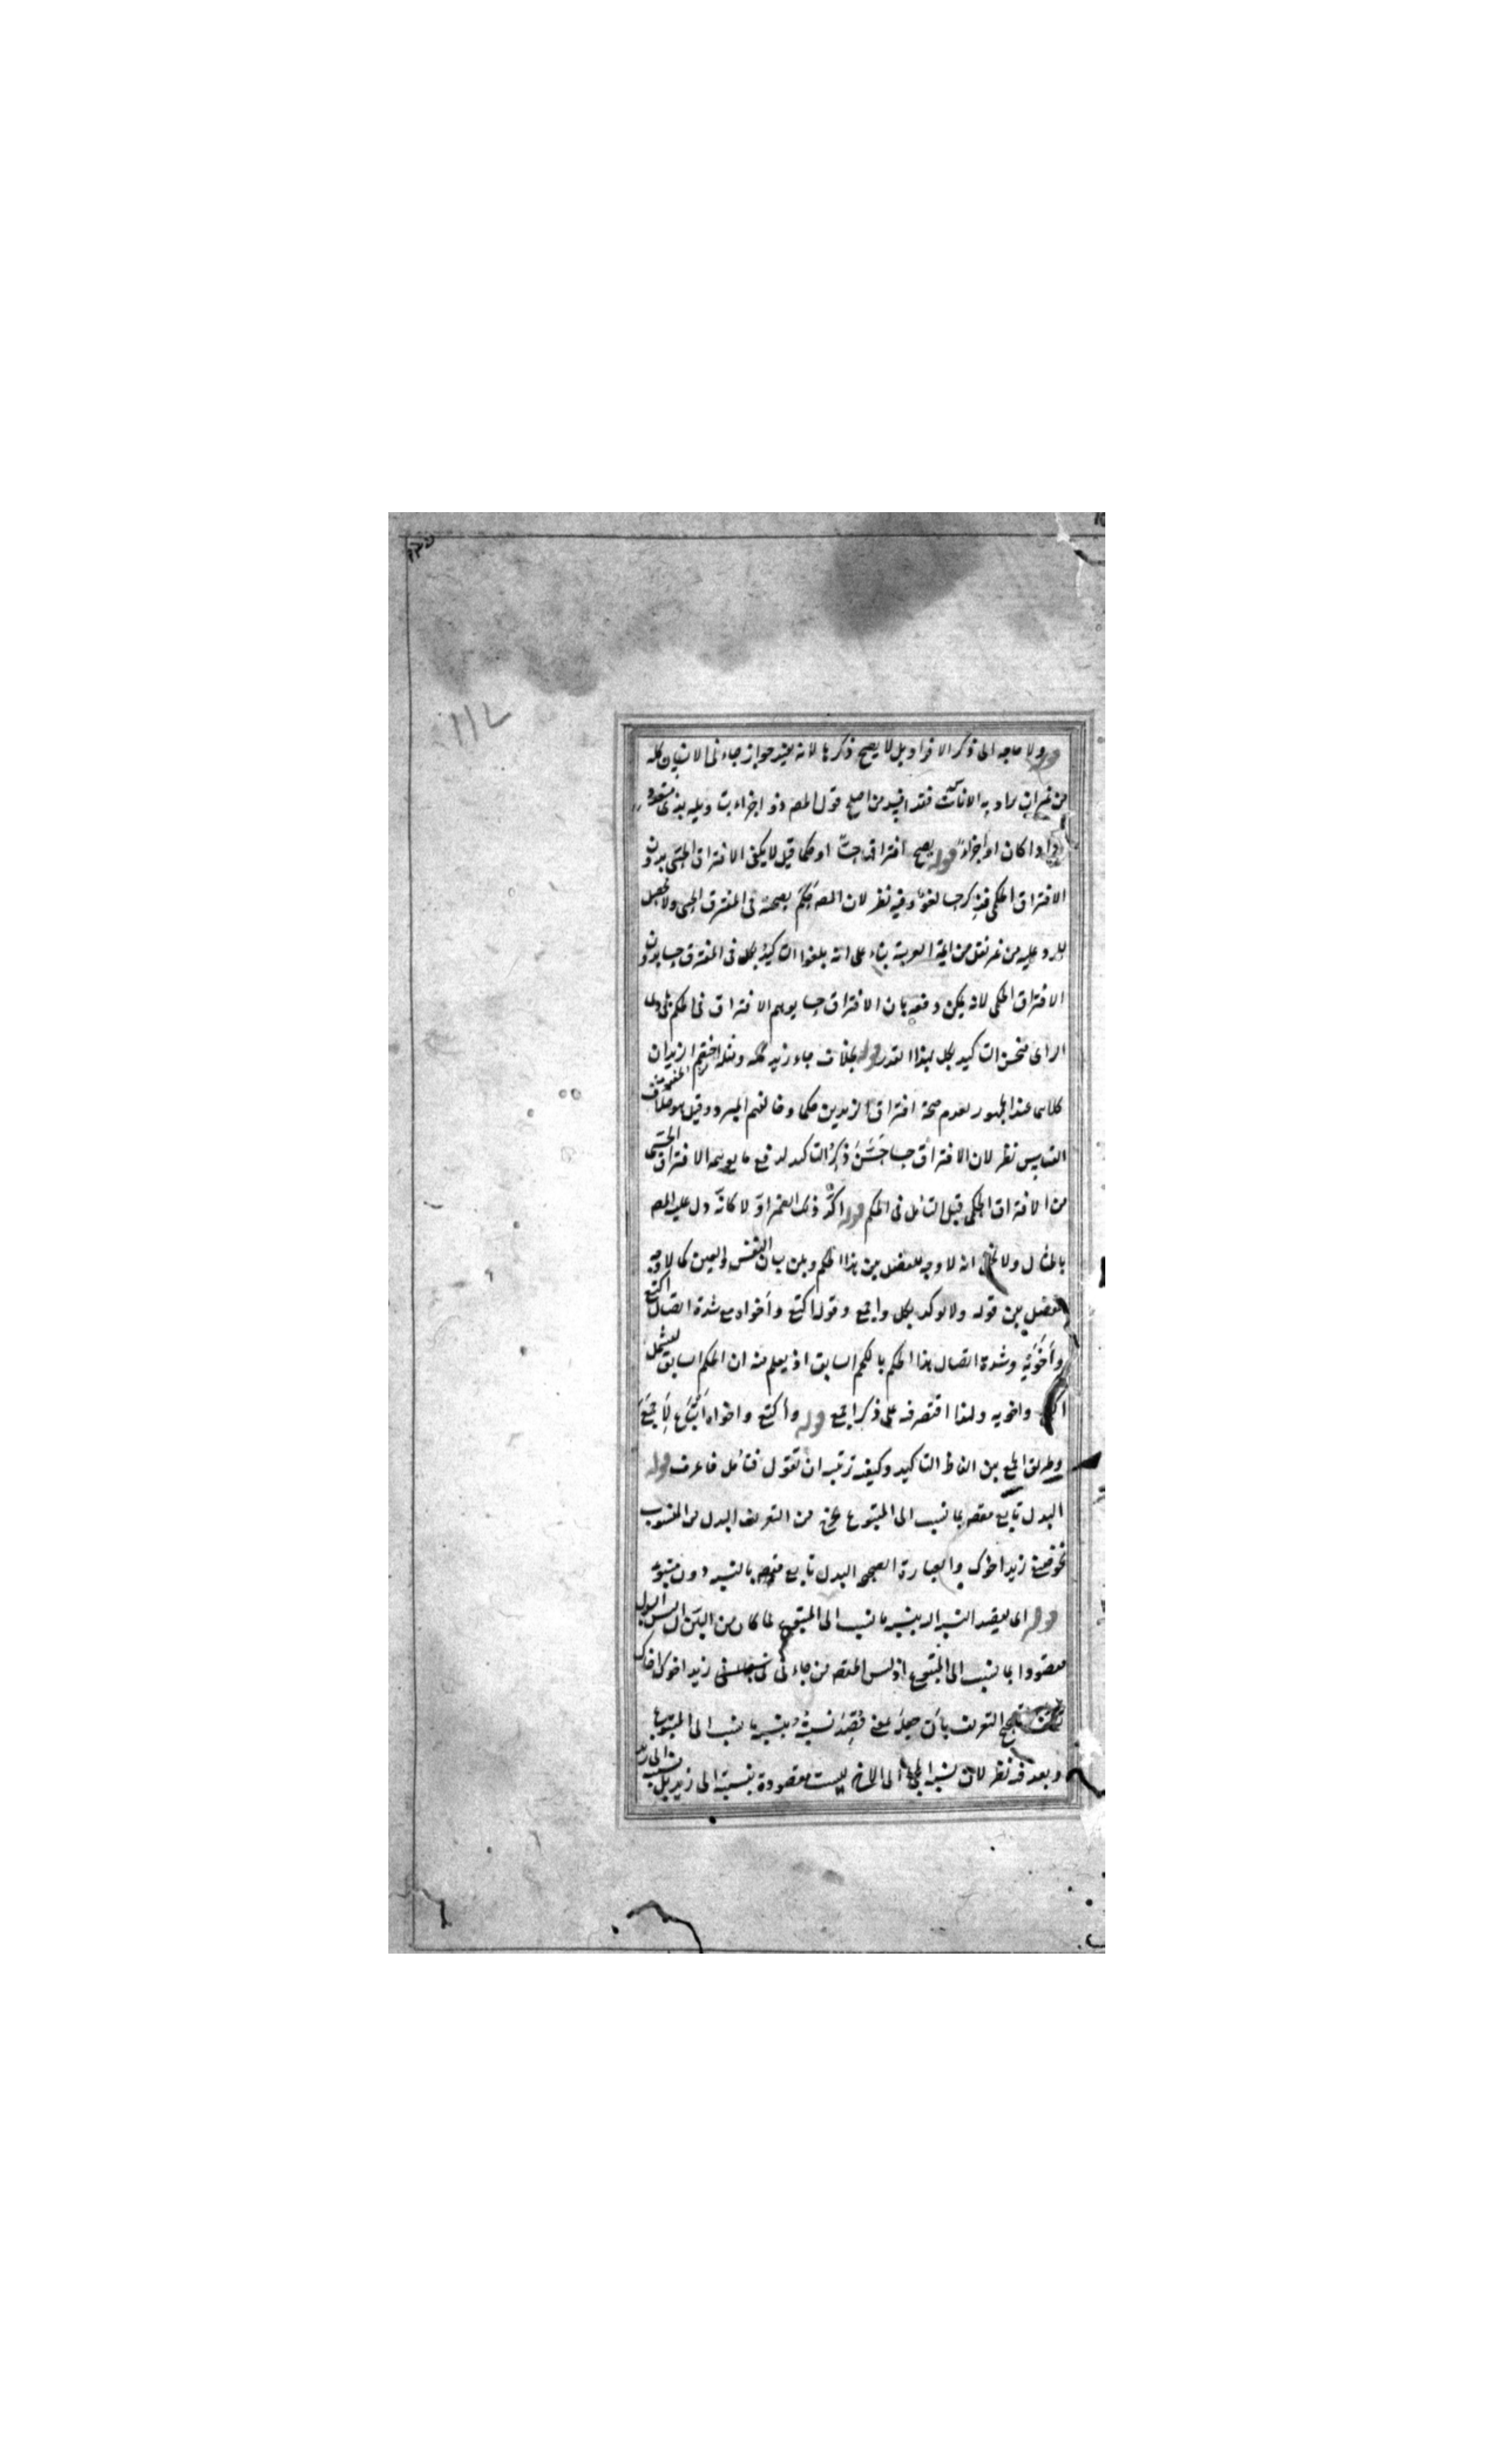 قوله ولا حاجة الى ذكر الافراد بل لا يصح ذكرها لانه يفيد جواز جاءنى الانسان كله
من غير ان يراد به الاناث فقد افسد من اصلح قول المصـ ذو اجزاء بتاويله بذى متعدد
افرادا كان او اجزاء قوله يصح افتراقها حسّا او حكما قيل لا يكفى الافتراق الحسّى بدون
الافتراق الحكمى فذكر حسا لغو وفيه نظر لان المصـ حكم بصحته فى المفترق الحسى ولا يحصل
للرد عليه من غير نقل من ايمة العربية بناء على انه يلغوا التاكيد بكل فى المفترق حسا بدون
الافتراق الحكمى لانه يمكن دفعه بان الافتراق حسا يوهم الافتراق فى الحكم فى بادى
الراى فيحسن التاكيد بكل لهذا القدر قوله بخلاف جاء زيد كله ومثله اختصم الزيدان
كلاهما عند الجمهور لعدم صحة افتراق الزيدين حكما وخالفهم المبرد وقيل هو خلاف
القياس نظر لان الافتراق حسا حَسَّنَ ذِكْرَ التاكيد لدفع ما يوهمه الافتراق الحسّى
من الافتراق الحكمى قبل التامل فى الحكم قوله اكّد ذلك الضمير اوّلا كانّه دل عليه المصـ
بالمثال ولا يخفى انه لا وجه للفصل بين هذا الحكم وبين بيان النفس والعين كما لا وجه
للفصل بين قوله ولا يوكد بكل واجمع وقوله اكتع واخواه مع شدة اتصال اكتع
وأَخَوَيْهِ وشدة اتصال هذا الحكم بالحكم السابق اذ يعلم منه ان الحكم السابق يشمل
اكتع واخويه ولهذا اقتصر فيه على ذكر اجمع قوله وأكتع واخواه أَتْبَاع لِأَجمَعَ
وطريق الجمع بين الفاظ التاكيد وكيفية ترتيبه ان تقول فتأمل فاعرف قوله
البدل تابع مقصود بما نسب الى المتبوع يخرج من التعريف البدل من المنسوب
نحو زيد اخوك والعبارة الصحيحة البدل تابع مقصود بالنسبة دون متبوعه
قوله اى يقصد النسبة اليه بنسبة ما نسب الى المتبوع لما كان من البيّن ان ليس البدل
مقصودا بما نسب الى المتبوع اذ ليس المقصود من جاءنى فى زيد اخوك اخاك
التعريف بأن جعله بمعنى قُصِدَ نسبتُه بنسبة ما نسب الى المتبوع
وبعد فيه نظر لان نسبة المجئ الى الاخ ليست مقصودة بنسبته الى زيد بل